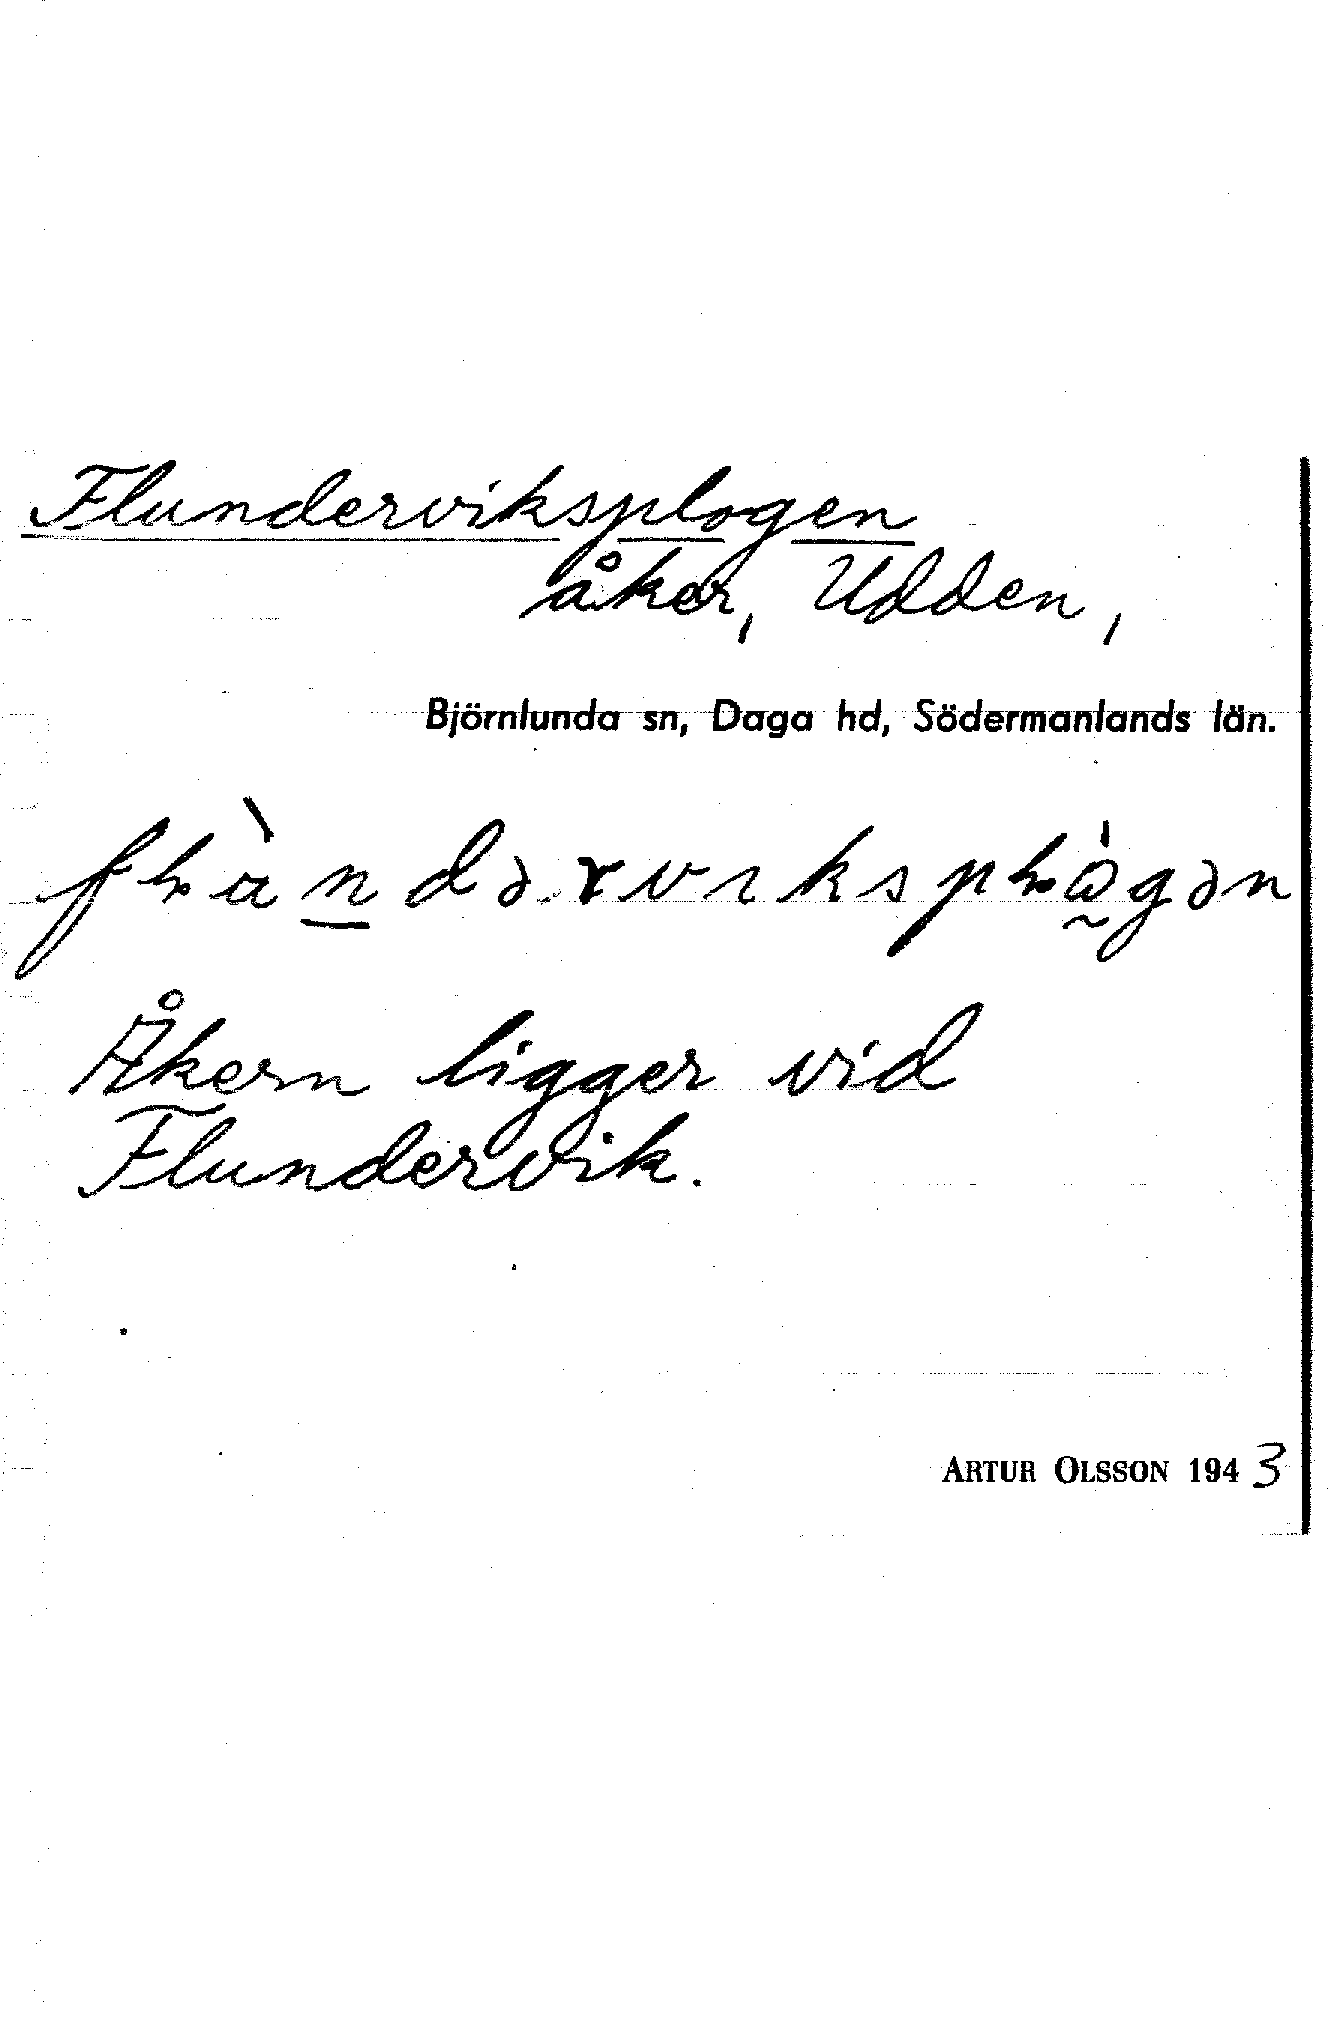 Flunderviksplogen
åker, Udden,
Björnlunda sn, Daga hd, Södermanlands län.
Åkern ligger vid
Flundervik.
ARTUR OLSSON 1943